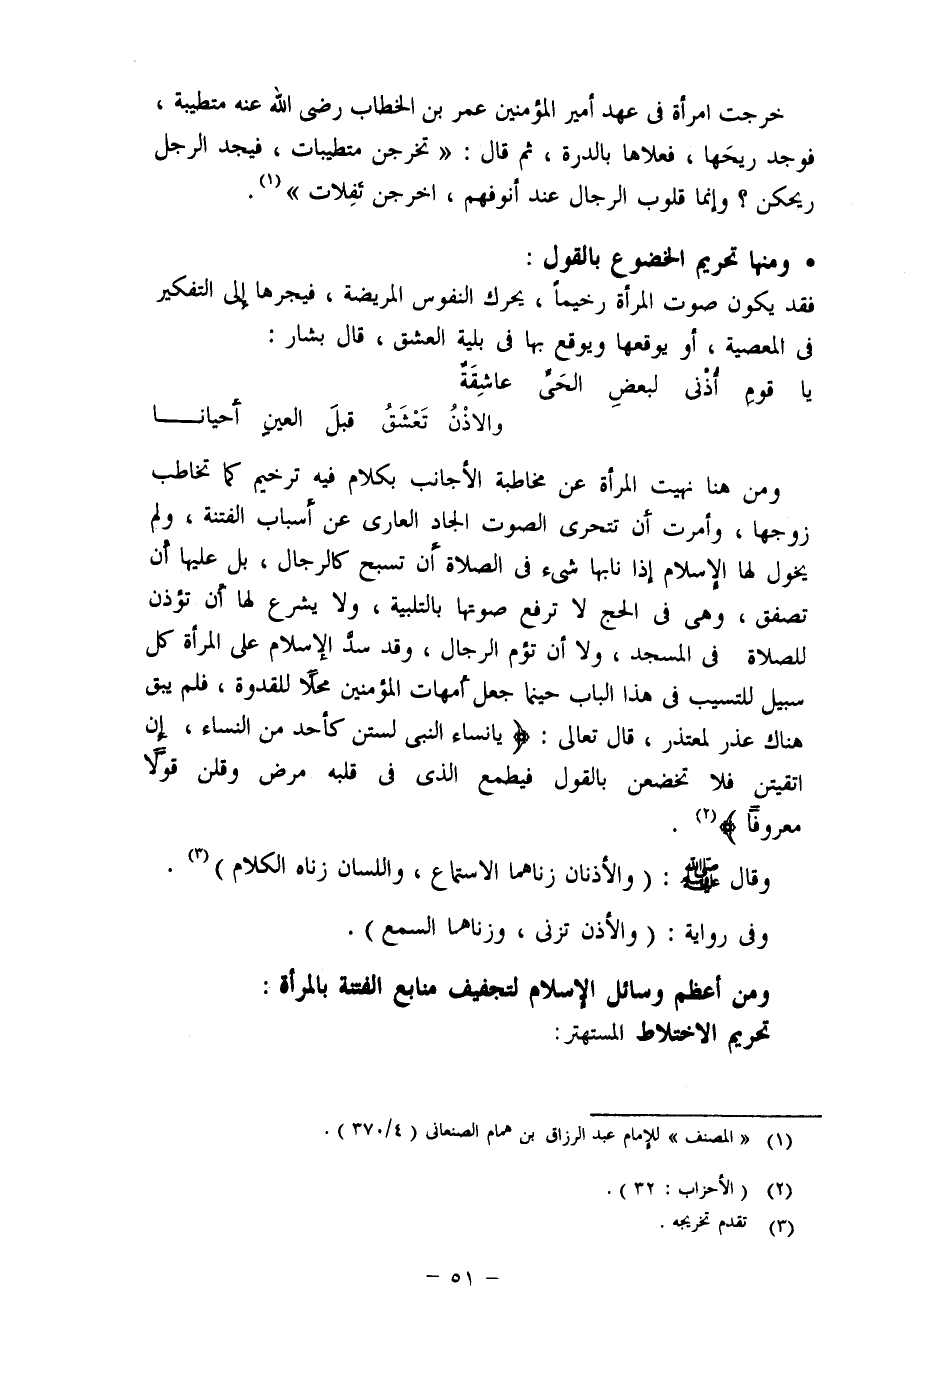 خرجت امرأة فى عهد أمير المؤمنين عمر بن الخطاب رضى الله عنه متطيبة ،
فوجد ريحَها ، فعلاها بالدرة ، ثم قال : « تخرجن متطيبات ، فيجد الرجل
ريحكن ؟ وإنما قلوب الرجال عند أنوفهم ، اخرجن تَفِلات »(١) .
• ومنها تحريم الخضوع بالقول :
فقد يكون صوت المرأة رخيماً ، يحرك النفوس المريضة ، فيجرها إلى التفكير
فى المعصية ، أو يوقعها ويوقع بها فى بلية العشق ، قال بشار :
يا قومِ أُذْنى لبعضِ الحَىِّ عاشِقَةٌ
والاذْنُ تَعْشَقُ قبلَ العينِ أحيانـــــا
ومن هنا نهيت المرأة عن مخاطبة الأجانب بكلام فيه ترخيم كما تخاطب
زوجها ، وأمرت أن تتحرى الصوت الجاد العارى عن أسباب الفتنة ، ولم
يخول لها الإسلام إذا نابها شىء فى الصلاة أن تسبح كالرجال ، بل عليها أن
تصفق ، وهى فى الحج لا ترفع صوتها بالتلبية ، ولا يشرع لها أن تؤذن
للصلاة فى المسجد ، ولا أن تؤم الرجال ، وقد سدَّ الإسلام على المرأة كل
سبيل للتسيب فى هذا الباب حينما جعل أمهات المؤمنين محلًا للقدوة ، فلم يبق
هناك عذر لمعتذر ، قال تعالى : ﴿ يانساء النبى لستن كأحد من النساء ، إن
اتقيتن فلا تخضعن بالقول فيطمع الذى فى قلبه مرض وقلن قولًا
معروفًا ﴾(٢) .
وقال ﷺ : ( والأذنان زناهما الاستماع ، واللسان زناه الكلام )(٣) .
وفى رواية : ( والأذن تزنى ، وزناهما السمع ) .
ومن أعظم وسائل الإسلام لتجفيف منابع الفتنة بالمرأة :
تحريم الاختلاط المستهتر :
(١) « المصنف » للإمام عبد الرزاق بن همام الصنعانى ( ٣٧٠/٤ ) .
(٢) ( الأحزاب : ٣٢ ) .
(٣) تقدم تخريجه .
– ٥١ –